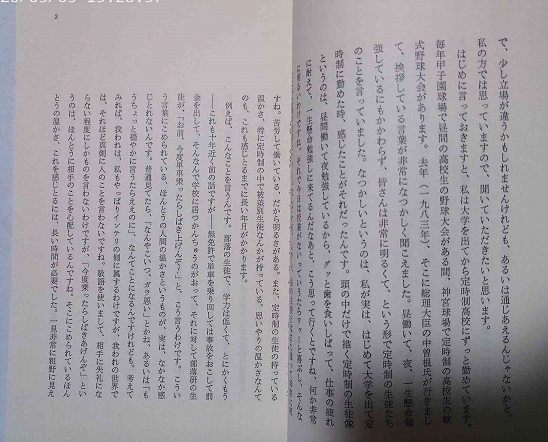 で、少し立場が違うかもしれませんけれども、あるいは通じあえるんじゃないかと、
私の方では思っていますので、聞いていただきたいと思います。
はじめに言っておきますと、私は大学を出てから定時制高校にずっと勤めています。
毎年甲子園球場で昼間の高校生の野球大会がある間、神宮球場で定時制の高校生の軟
式野球大会があります。去年（一九八三年）、そこに総理大臣の中曽根氏が行きまし
て、挨拶している言葉が非常になつかしく聞こえました。昼働いて、夜、一生懸命勉
強しているにもかかわらず、皆さんは非常に明るくて、という形で定時制の生徒たち
のことを言っていました。なつかしいというのは、私が実は、はじめて大学を出て定
時制に勤めた時、感じたことがそれだったんです。頭の中だけで描く定時制の生徒像
というのは、昼間働いて夜勉強しているから、グッと歯を食いしばって、仕事の疲れ
に耐えて、一生懸命勉強しに来てるんだなあと、こう思って行くとですね、何か非常
に明るいわけですね。それで今日は授業がないっていうたらワァーと喜ぶし、そんな
すね、苦労して働いている、だから明るさがある。また、定時制の生徒の持っている
温かさ、特に定時制の中で被差別生徒なんかが持っている、思いやりの温かさなんて
のも、これも感じとるまでに長い年月がかかります。
例えば、こんなことを言うんです。部落の生徒で、学力は低くて、とにかくもう
――これも十年近く前の話ですが――無免許で単車を乗り回しては事故をおこして前
金を出して、そんなんで学校に居つかんちゅうのがおって、それに対して部落研の生
徒が、「お前、今度単車乗ったらしばき上げんぞ！」と、こう言うわけです。こうい
う言葉にこめられている、ほんとうの人間の温かさというものが、実は、なかなか感
じとれないんです。普通見てたら、「なんやこいつ、ガラ悪い」とかね、あるいは「も
うちょっと穏やかに言うたらええのに」、なんてことになるんですけれども、考えて
みれば、我われは、私もやっぱりインテリの側に属するわけですが、我われの世界で
は、それほど真剣に人のことを言わないですね。敬語を使いまして、相手に失礼にな
らない程度にしかものを言わないわけですが、「今度乗ったらしばきあげんぞ」とい
うのは、ほんとうに相手のことを心配しているんですね。そこにこめられているほん
とうの温かさ、これを感じとるには、長い時間が必要でした。一見非常に粗野に見え
3